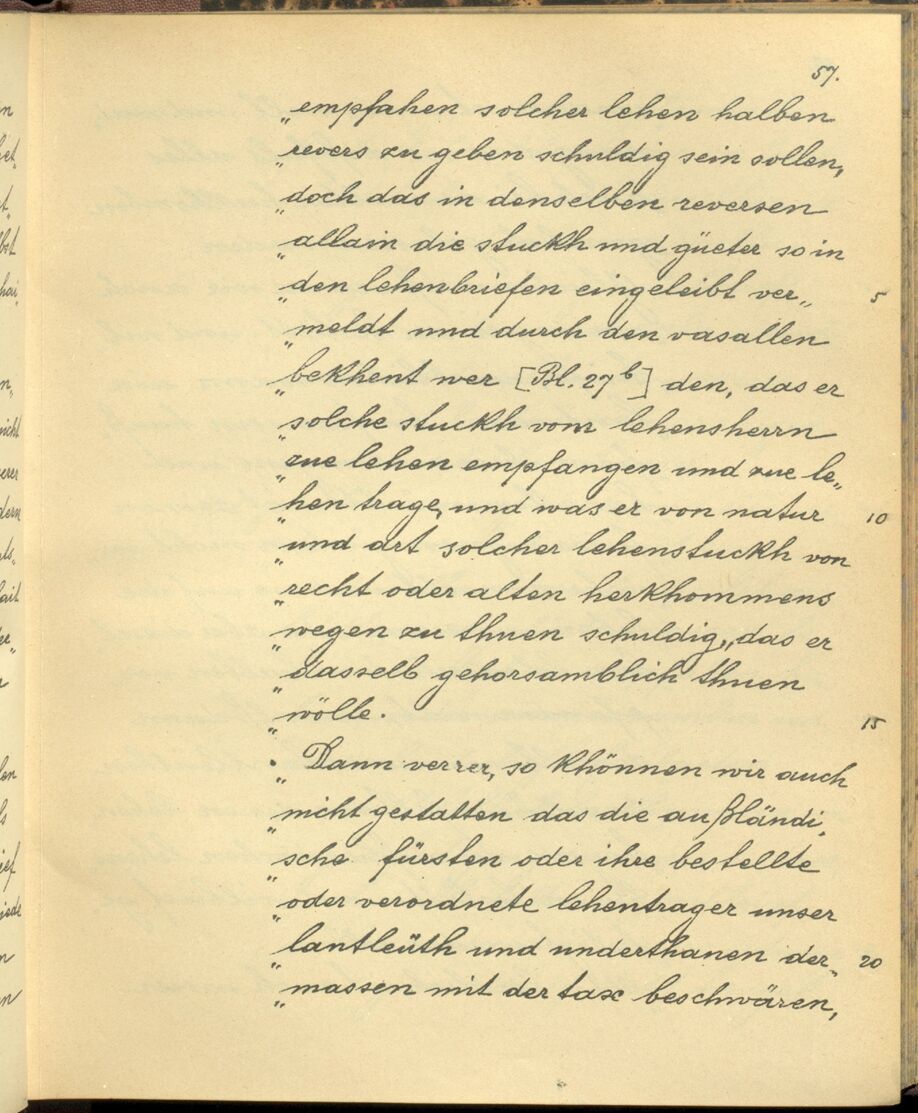 57.
„empfahen solcher lehen halben
„revers zu geben schuldig sein sollen,
„doch das in denselben reversen
„allain die stuckh und güeter so in
„den lehenbriefen eingeleibt ver„ 5
„meldt und durch den vasallen
„bekhent wer [Bl. 27b] den, das er
„solche stuckh vom lehensherrn
„zue lehen empfangen und zue le„
„hen trage, und was er von natur 10
„und art solcher lehenstuckh von
„recht oder alten herkhommens
„wegen zu thuen schuldig, das er
„dasselb gehorsamblich thuen
„wölle. 15
„Dann verrer, so khönnen wir auch
„nicht gestatten das die außländi„
„sche fürsten oder ihre bestellte
„oder verordnete lehentrager unser
„lantleüth und underthanen der„ 20
„massen mit der tax beschwären,